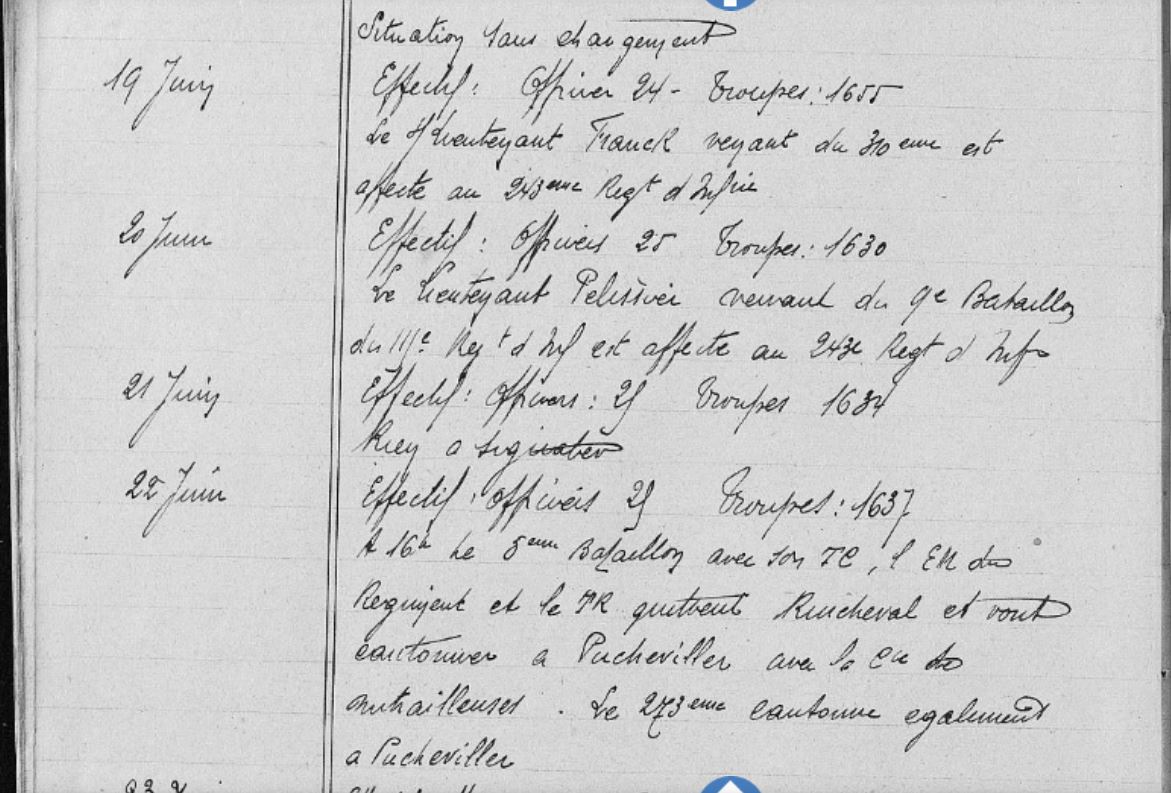 Situation sans changement
19 Juin Effectif: Officier 24 - Troupes: 1655
Le S/Lieutenant Franck venant du 310eme est
affecte au 243eme Regt d Infrie
20 Juin Effectif: Officiers 25 Troupes: 1630
Le Lieutenant Pelissier venant du 9e Bataillon
du 111e Regt d Inf est affecte au 243e Regt d Infie
21 Juin Effectif: Officiers: 25 Troupes 1634
Rien a signaler
22 Juin Effectif: Officiers 25 Troupes: 1637
A 16h le 5eme Bataillon avec son TC, l EM du
Regiment et le TR quittent Rincheval et vont
cantonner a Pucheviller avec la Cie de
mitrailleuses. Le 273eme cantonne egalement
a Pucheviller